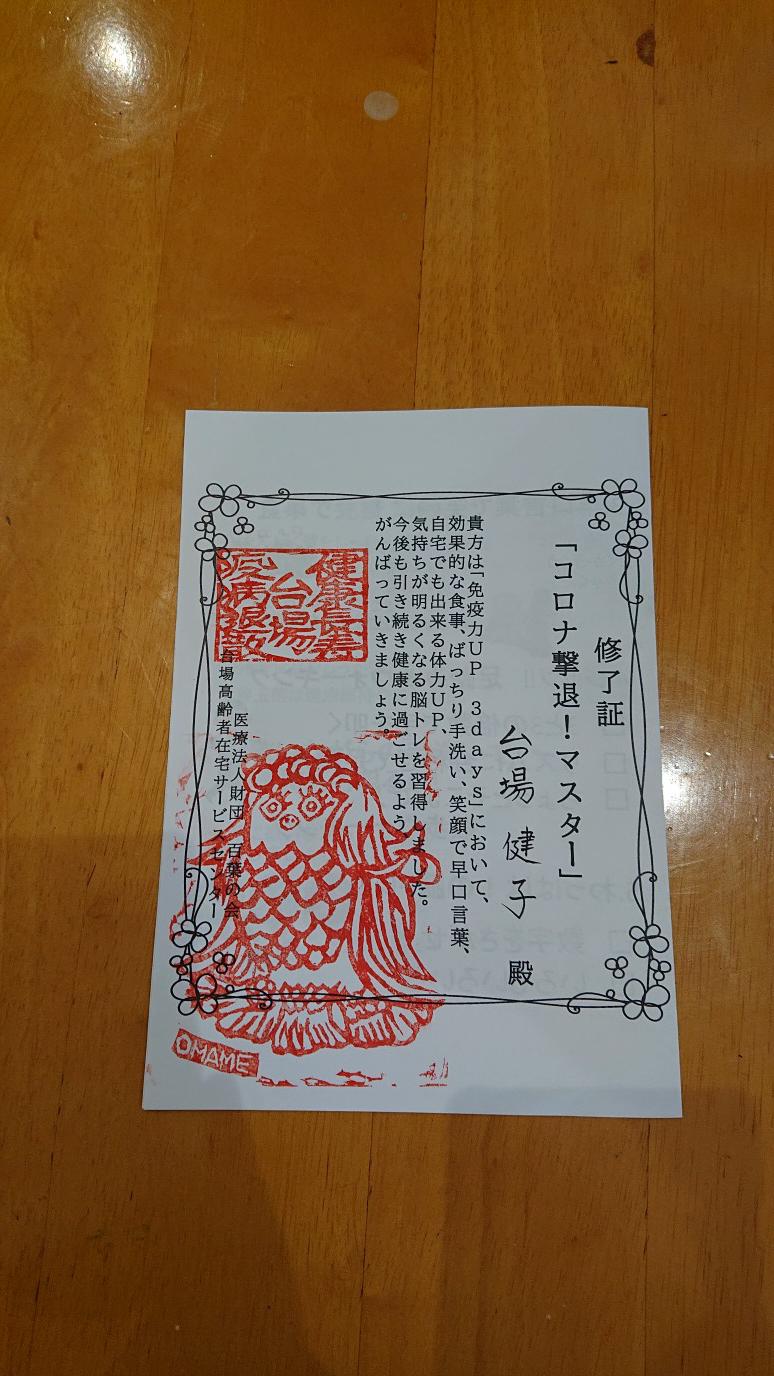 修了証
「コロナ撃退!マスター」
台場 健子 殿
貴方は「免疫力UP 3days」において、
効果的な食事、ばっちり手洗い、笑顔で早口言葉、
自宅でも出来る体力UP、
気持ちが明るくなる脳トレを習得しました。
今後も引き続き健康に過ごせるよう
がんばっていきましょう。
健康長寿
台場
疫病退散
医療法人財団 百葉の会
台場高齢者在宅サービスセンター
OMAME